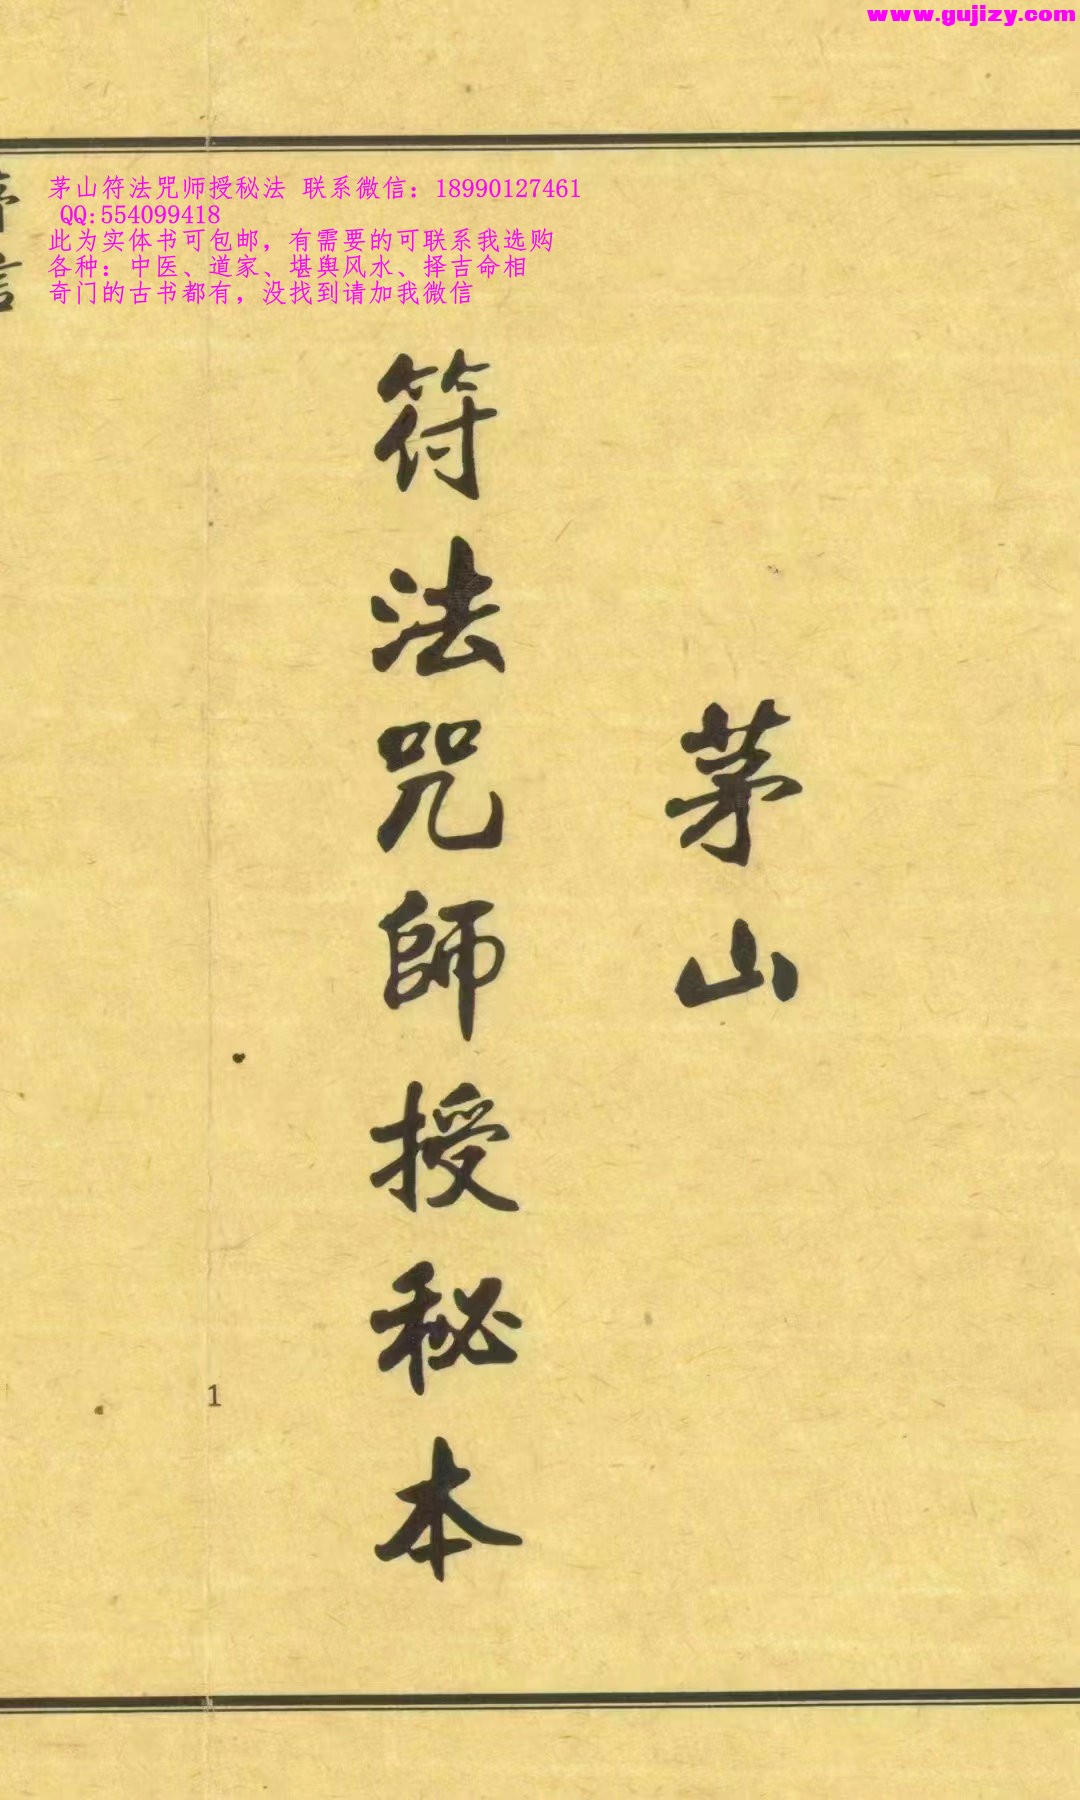 www.gujizy.com
茅山符法咒师授秘法 联系微信：18990127461
QQ:554099418
此为实体书可包邮，有需要的可联系我选购
各种：中医、道家、堪舆风水、择吉命相
奇门的古书都有，没找到请加我微信
茅山
符法咒師授秘本
1